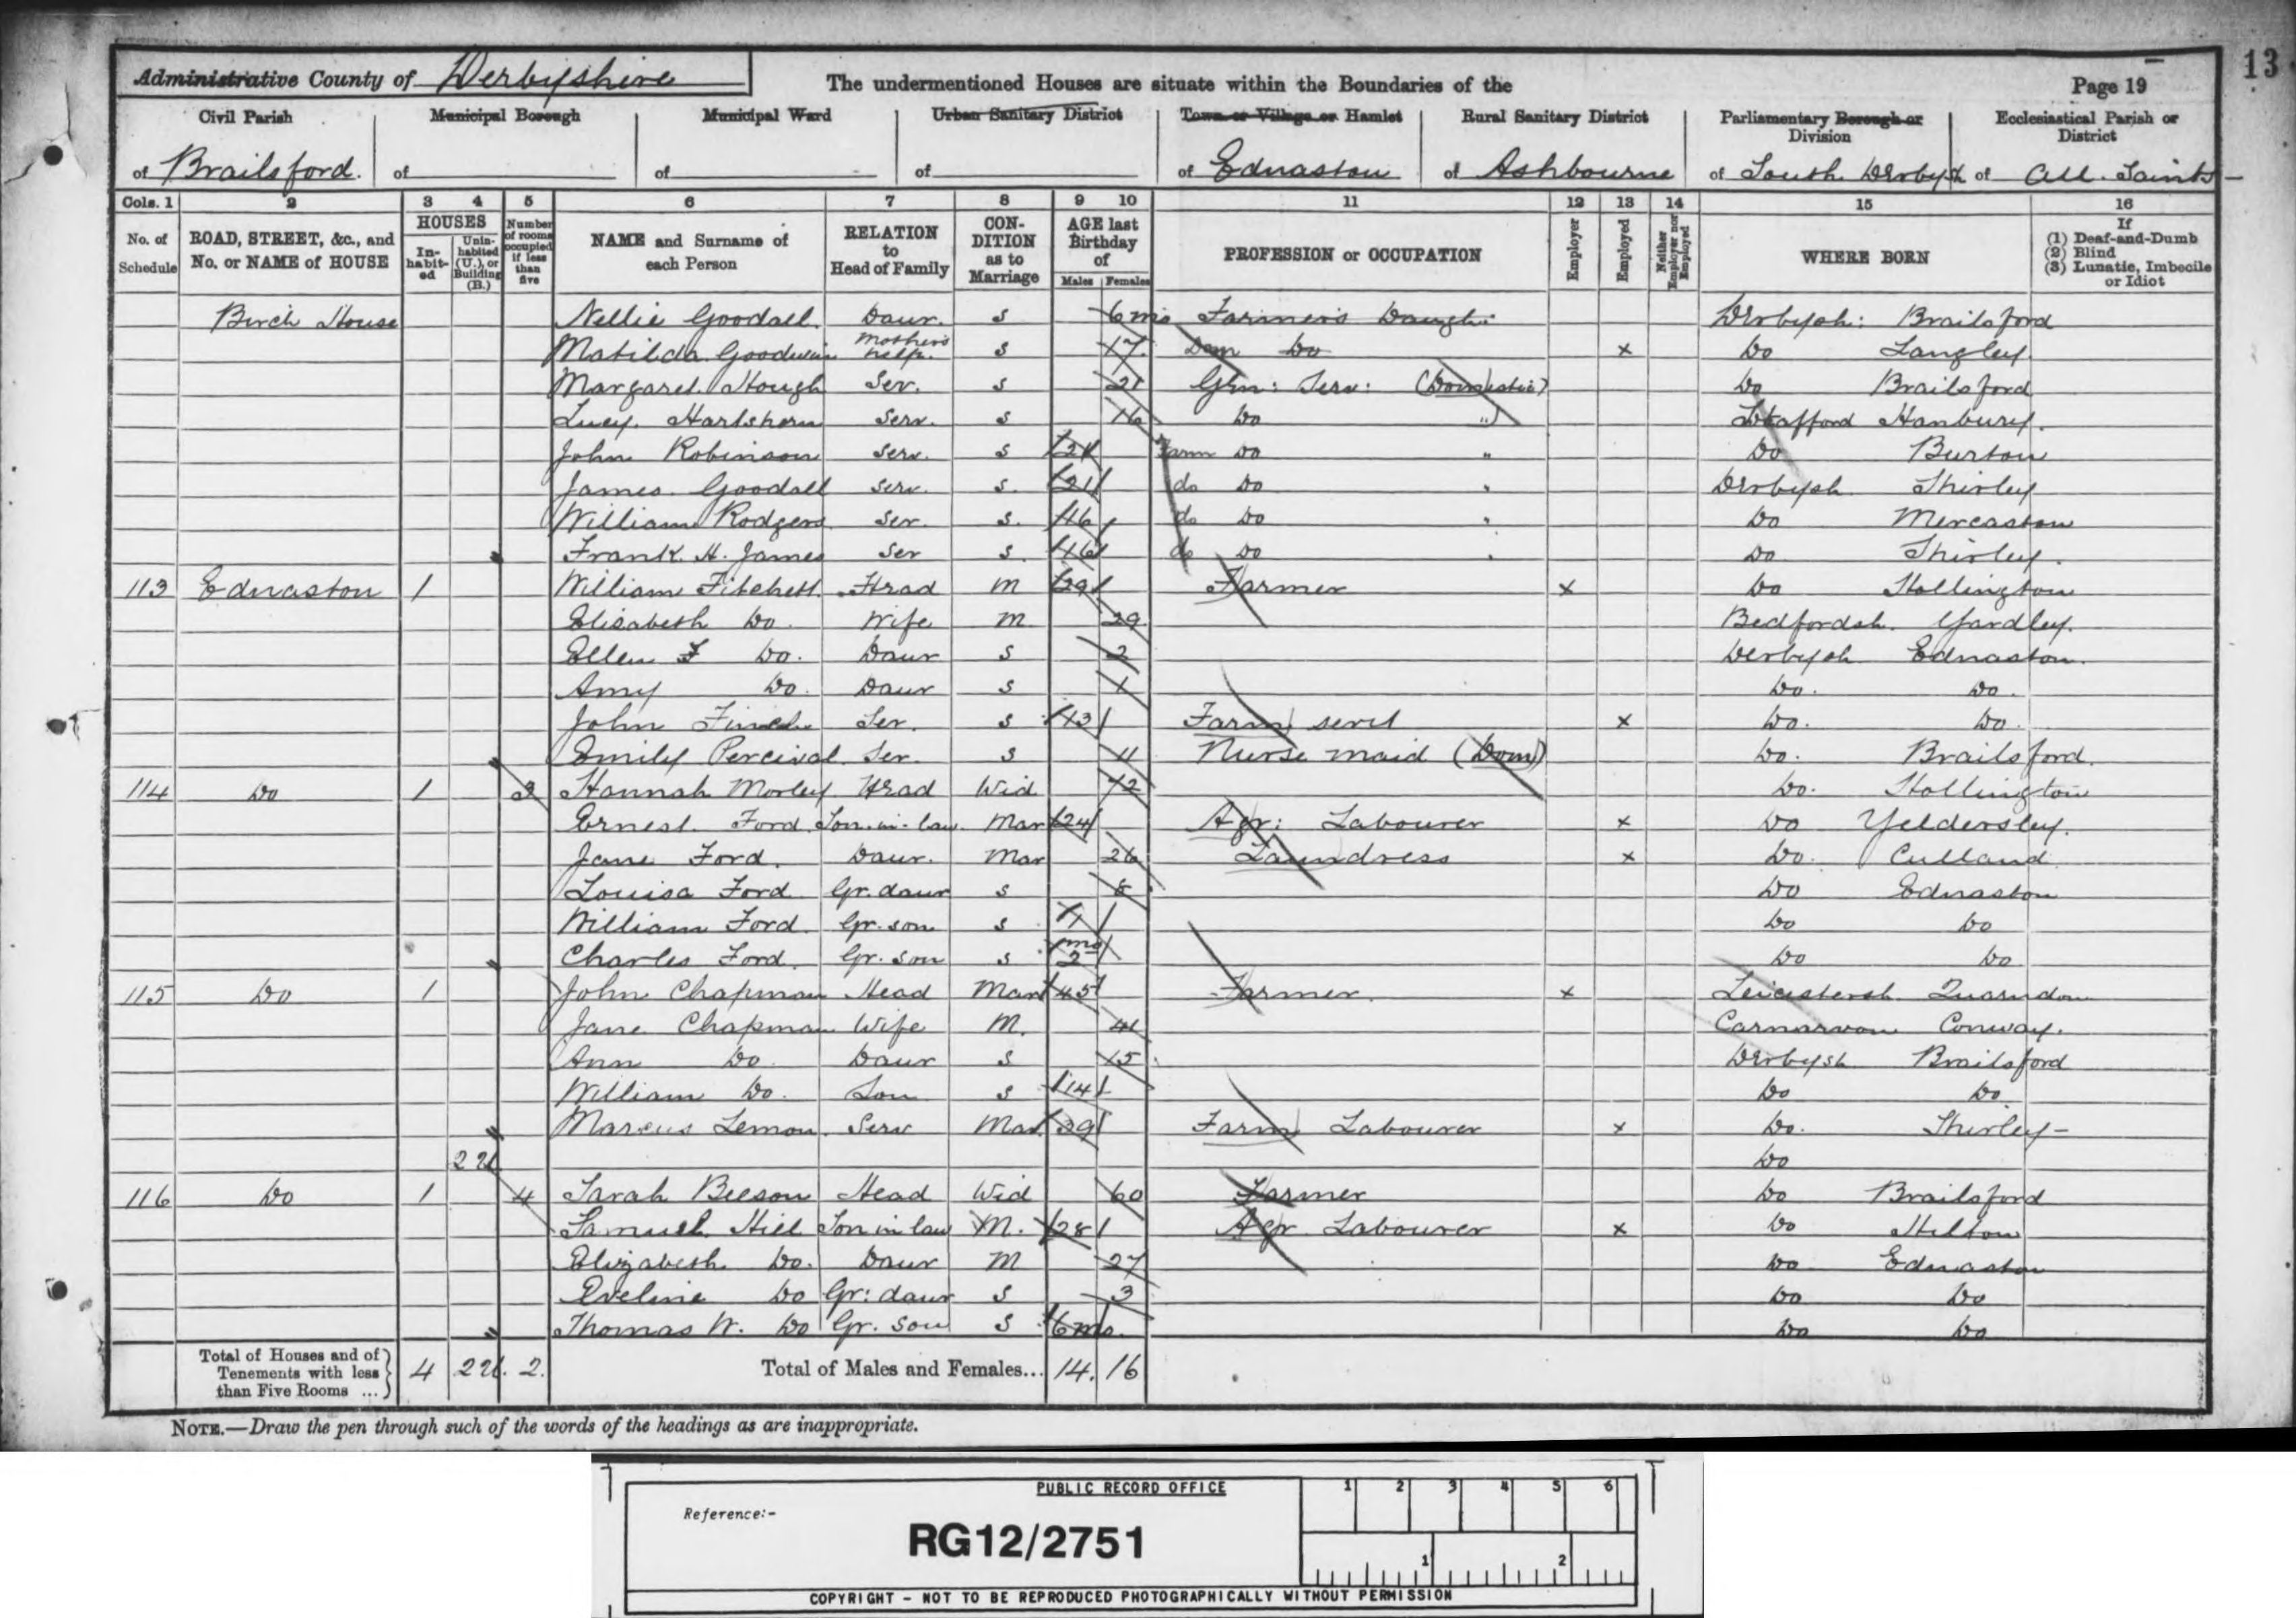 Administrative County of Derbyshire The undermentioned Houses are situate within the Boundaries of the Page 19 13
Civil Parish Municipal Borough Municipal Ward Urban Sanitary District Town or Village or Hamlet Rural Sanitary District Parliamentary Borough or Division Ecclesiastical Parish or District
of Brailsford. of of of of Ednaston of Ashbourne of South Derbysh of All. Saints
Cols. 1 2 3 4 5 6 7 8 9 10 11 12 13 14 15 16
No. of Schedule ROAD, STREET, &c., and No. or NAME of HOUSE HOUSES In-habit-ed Unin-habited (U.), or Building (B.) Number of rooms occupied if less than five NAME and Surname of each Person RELATION to Head of Family CON-DITION as to Marriage AGE last Birthday of Males Females PROFESSION or OCCUPATION Employer Employed Neither Employer nor Employed WHERE BORN If (1) Deaf-and-Dumb (2) Blind (3) Lunatic, Imbecile or Idiot
Birch House Nellie Goodall. Daur. S 6 mo Farmer's Daugh: Derbysh: Brailsford
Matilda Goodwin Mother's help. S 17 Dom Do x Do Langley.
Margaret Hough Ser. S 21 Gen: Serv: (Domestic) Do Brailsford
Lucy. Hartshorn Serv. S 16 Do " Stafford Hanbury.
John Robinson Serv. S 21 Farm Do " Do Burton
James Goodall Serv. S. 21 do Do " Derbysh Shirley
William Rodgers Ser. S. 16 do Do " Do Mercaston
Frank. H. James Ser S 16 do Do Do Shirley.
113 Ednaston 1 William Fitchett. Head M 29 Farmer x Do Hollington
Elisabeth Do. Wife M 29 Bedfordsh. Yardley.
Ellen F Do. Daur S 2 Derbysh Ednaston.
Amy Do. Daur S 1 Do. Do.
John Finch Ser. S 13 Farm servt x Do. Do.
Emily Percival. Ser. S 11 Nurse maid (Dom) Do. Brailsford.
114 Do 1 3 Hannah Morley Head Wid 72 Do. Hollington
Ernest. Ford Son-in-law. Mar 24 Agr: Labourer x Do Yeldersley.
Jane Ford. Daur. Mar 26 Laundress x Do. Culland
Louisa Ford Gr. daur S Do Ednaston
William Ford. Gr. son S 1 Do Do
Charles Ford. Gr. son S 2 mo Do Do
115 Do 1 John Chapman Head Mar 45 Farmer. x Leicestersh. Quarndon
Jane Chapman Wife M. 41 Carnarvon Conway.
Ann Do Daur S 15 Derbysh Brailsford
William Do. Son S 14 Do Do
Marcus Lemon. Serv Mar. 29 Farm Labourer x Do. Shirley
2 U Do
116 Do 1 4 Sarah Beeson Head Wid 60 Farmer Do Brailsford
Samuel. Hill Son in law M. 28 Agr Labourer x Do Hilton
Elizabeth Do. Daur M 27 Do Ednaston
Eveline Do Gr: daur S 3 Do Do
Thomas W. Do Gr. son S 6 mo. Do Do
Total of Houses and of Tenements with less than Five Rooms ... 4 2 U. 2. Total of Males and Females... 14. 16
NOTE.—Draw the pen through such of the words of the headings as are inappropriate.
PUBLIC RECORD OFFICE 1 2 3 4 5 6
Reference:-
RG12/2751
1 2
COPYRIGHT - NOT TO BE REPRODUCED PHOTOGRAPHICALLY WITHOUT PERMISSION